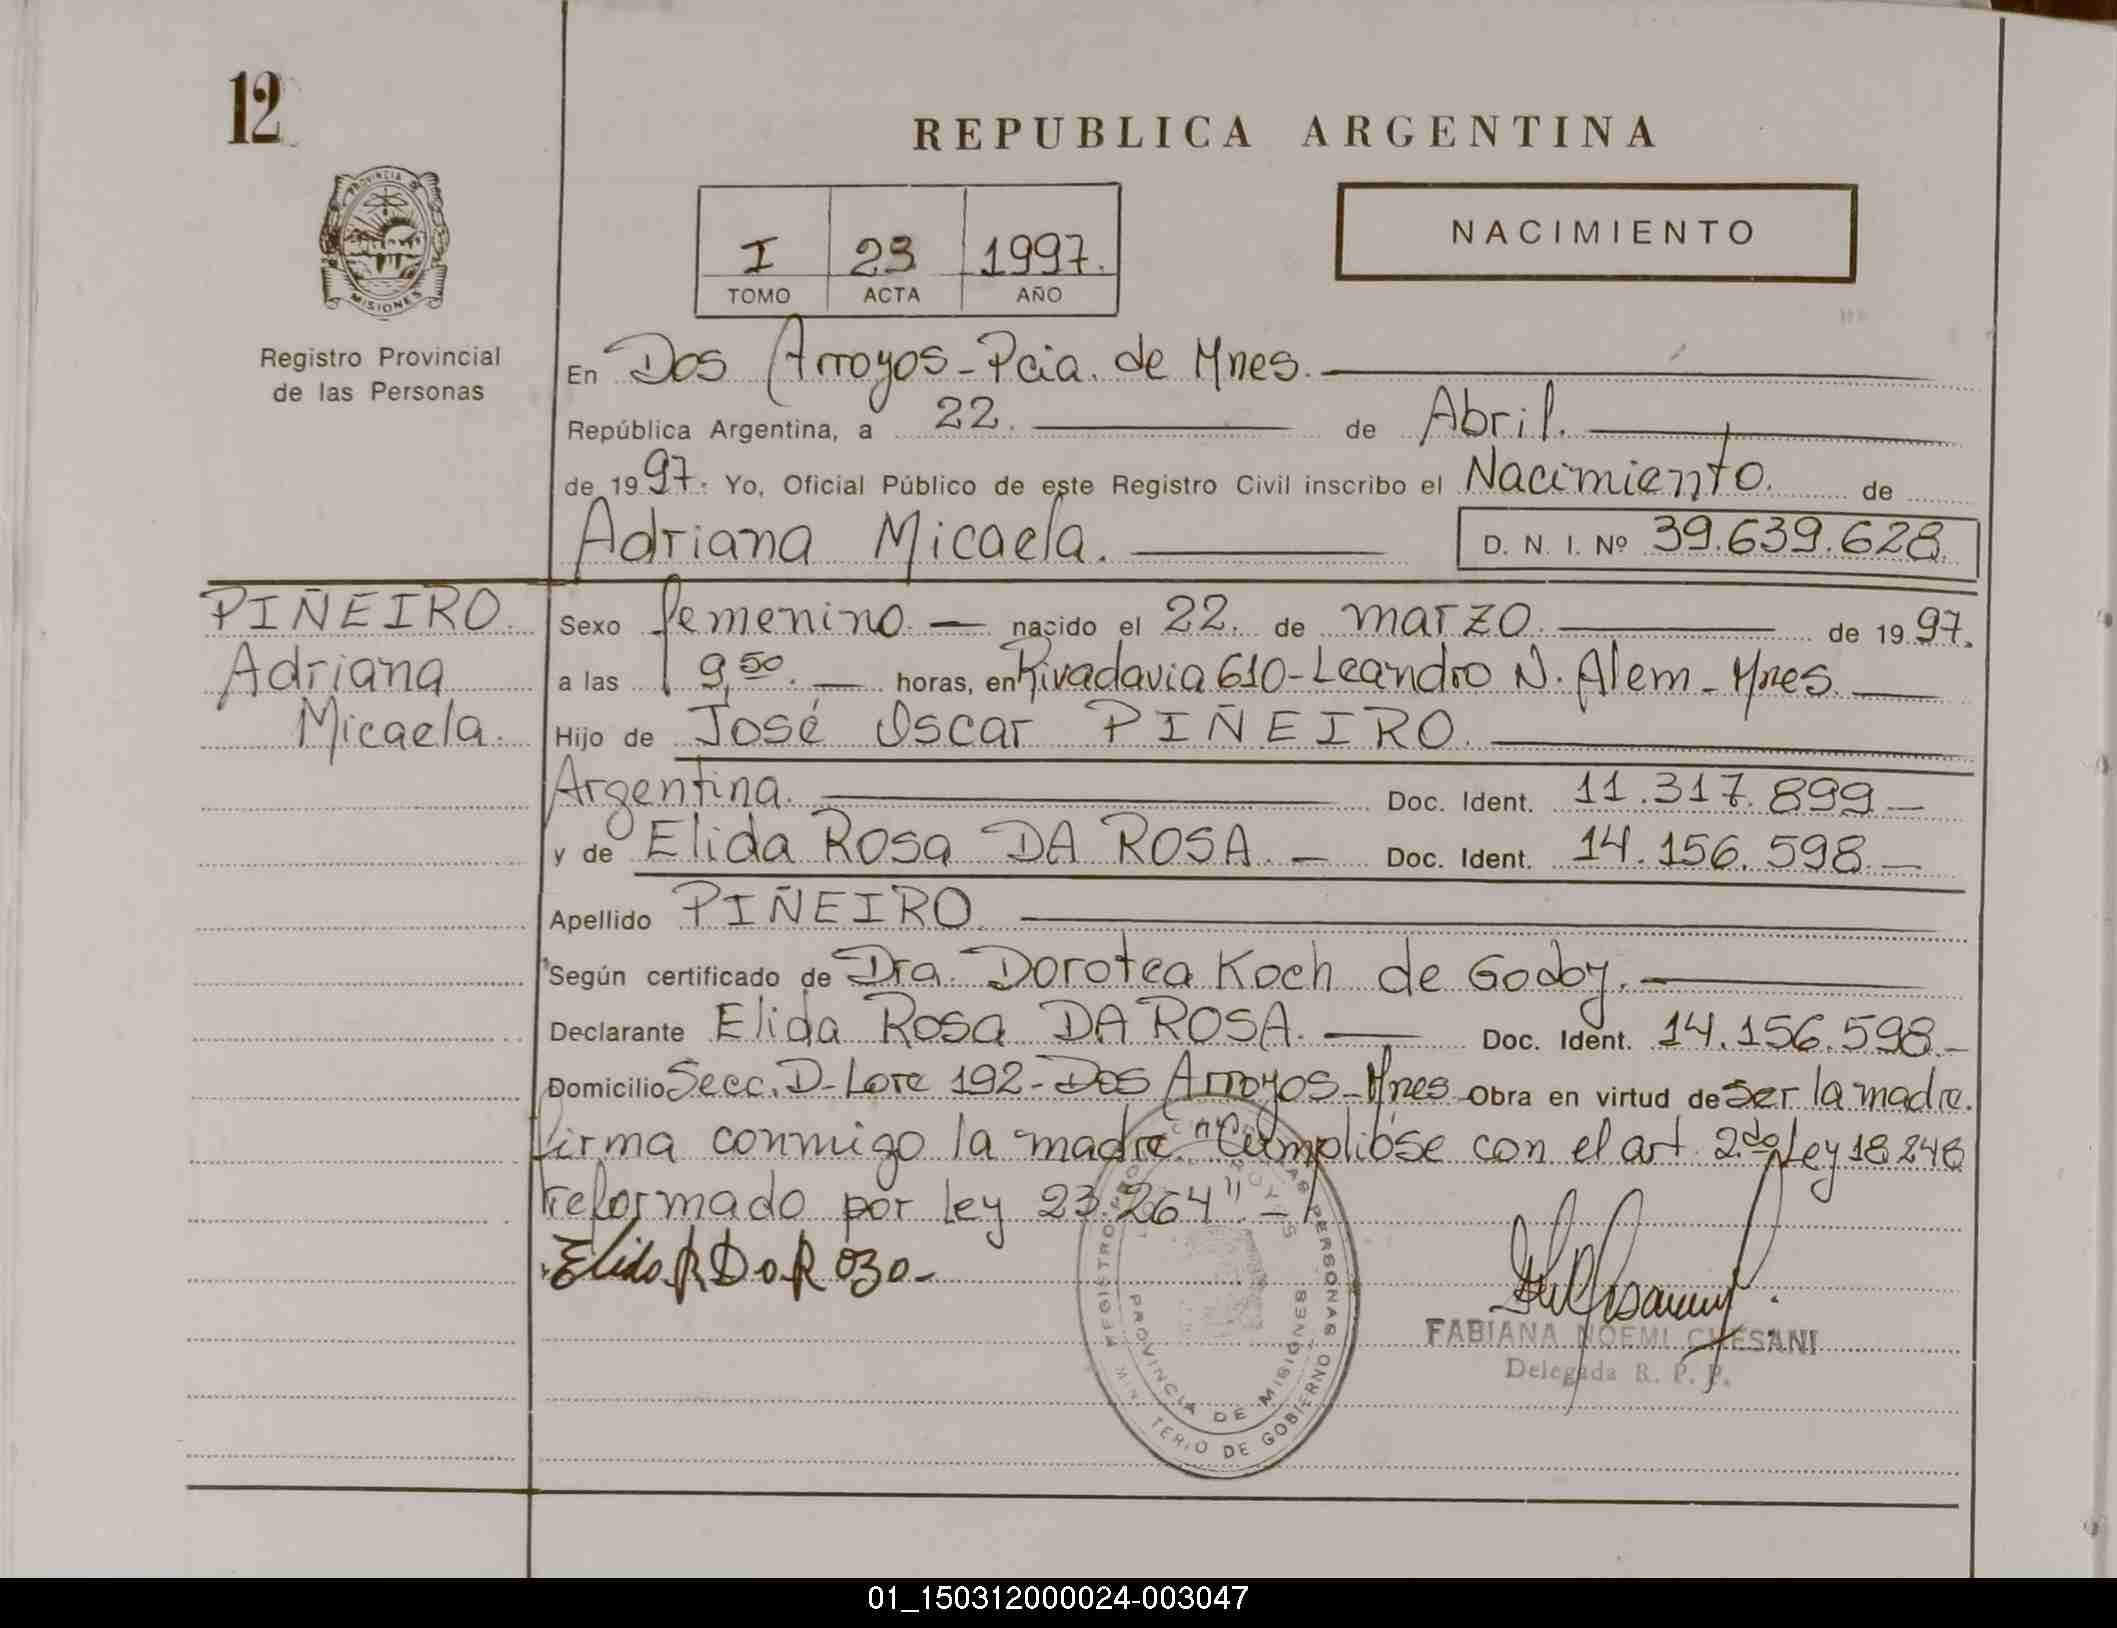 12
REPUBLICA ARGENTINA
PROVINCIA DE
MISIONES
Registro Provincial
de las Personas
I 23 1997.
TOMO ACTA AÑO
NACIMIENTO
En Dos Arroyos - Pcia. de Mnes.
República Argentina, a 22. de Abril.
de 1997. Yo, Oficial Público de este Registro Civil inscribo el Nacimiento. de
Adriana Micaela. D. N. I. Nº 39.639.628.
PIÑEIRO.
Adriana
Micaela.
Sexo femenino. — nacido el 22. de marzo. de 1997.
a las 9,50. — horas, en Rivadavia 610 - Leandro N. Alem - Mnes.
Hijo de José Oscar PIÑEIRO.
Argentina. Doc. Ident. 11.317.899 —
y de Elida Rosa DA ROSA. — Doc. Ident. 14.156.598. —
Apellido PIÑEIRO.
Según certificado de Dra. Dorotea Koch de Godoy.
Declarante Elida Rosa DA ROSA. — Doc. Ident. 14.156.598. —
Domicilio Secc. D - Lote 192 - Dos Arroyos - Mnes. Obra en virtud de ser la madre.
firma conmigo la madre. "Cumplióse con el art. 2do Ley 18248
reformado por ley 23.264". —
REGISTRO PERSONAS
PROVINCIA DE MISIONES
MINISTERIO DE GOBIERNO
FABIANA NOEMI CHESANI
Delegada R. P. P.
01_150312000024-003047